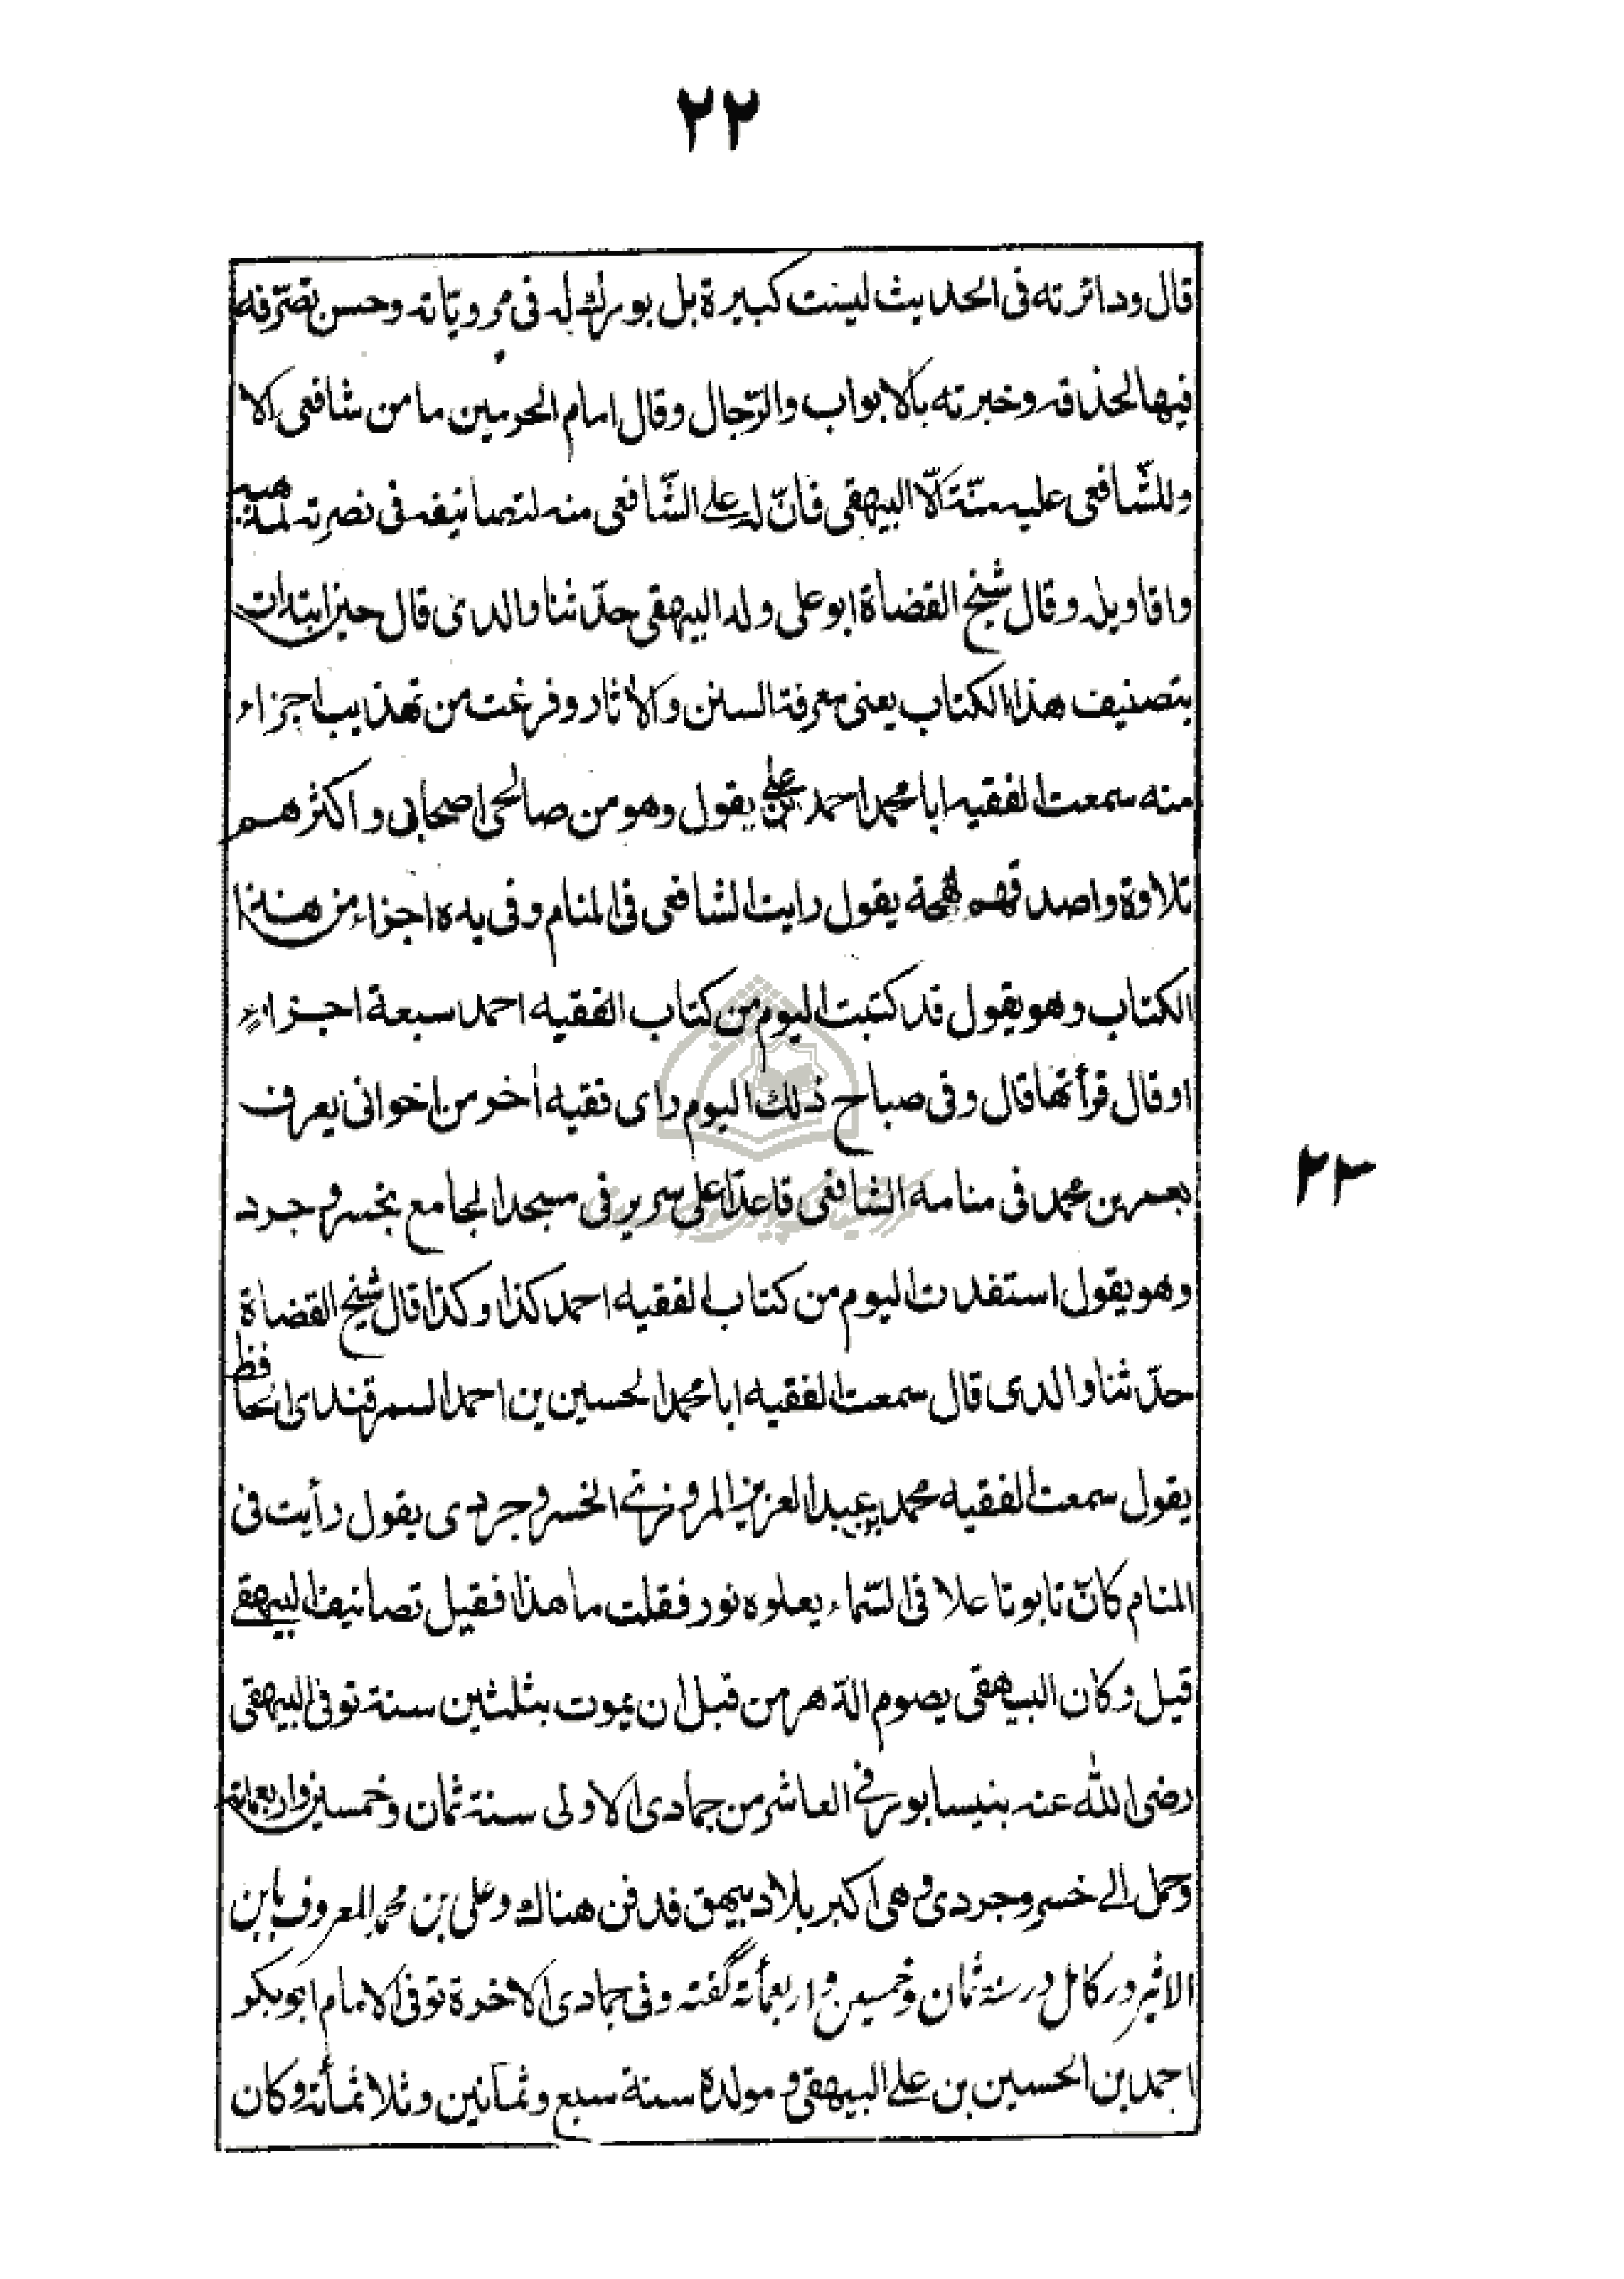 ۲۲
قال ودائرته فى الحديث ليست كبيرة بل بورك له فى مروياته وحسن تصرّفه
فيها لحذاقه وخبرته بالابواب والرّجال وقال امام الحرمين ما من شافعى الا
وللشّافعى عليه منّة الّا البيهقى فانّ له على الشّافعى منه لتصانيفه فى نصرته لمذهبه
واقاويله وقال شيخ القضاة ابو على ولد البيهقى حدّثنا والدى قال حين ابتدات
بتصنيف هذا الكتاب يعنى معرفة السنن والاثار وفرغت من تهذيب اجزاء
منه سمعت الفقيه ابا محمد احمد بن على يقول وهو من صالحى اصحابى واكثرهم
تلاوة واصدقهم لهجة يقول رايت الشافعى فى المنام وفى يده اجزاء من هذا
الكتاب وهو يقول قد كتبت اليوم من كتاب الفقيه احمد سبعة اجزاء
او قال قرأتها قال وفى صباح ذلك اليوم راى فقيه اٰخر من اخوانى يعرف
بعمر بن محمد فى منامه الشافعى قاعدًا على سرير فى مسجد الجامع بخسروجرد
وهو يقول استفدت اليوم من كتاب الفقيه احمد كذا وكذا قال شيخ القضاة
حدّثنا والدى قال سمعت الفقيه ابا محمد الحسين بن احمد السمرقندى الحافظ
يقول سمعت الفقيه محمد بن عبد العزيز المروزى الخسروجردى يقول رأيت فى
المنام كانّ تابوتا علا فى السّماء يعلوه نور فقلت ما هذا فقيل تصانيف البيهقى
قيل وكان البيهقى يصوم الدّهر من قبل ان يموت بثلثين سنة توفى البيهقى
رضى الله عنه بنيسابور فى العاشر من جمادى الاولى سنة ثمان وخمسين واربعمائة
وحمل الى خسروجرد وهى اكبر بلاد بيهق فدفن هناك وعلى بن محمد المعروف بابن
الاثير در كامل در سنة ثمان وخمسين واربعمأئة گفته وفى جمادى الاخرة توفى الامام ابو بكر
احمد بن الحسين بن على البيهقى ومولده سنة سبع وثمانين وثلاثمأئة وكان
۲۳